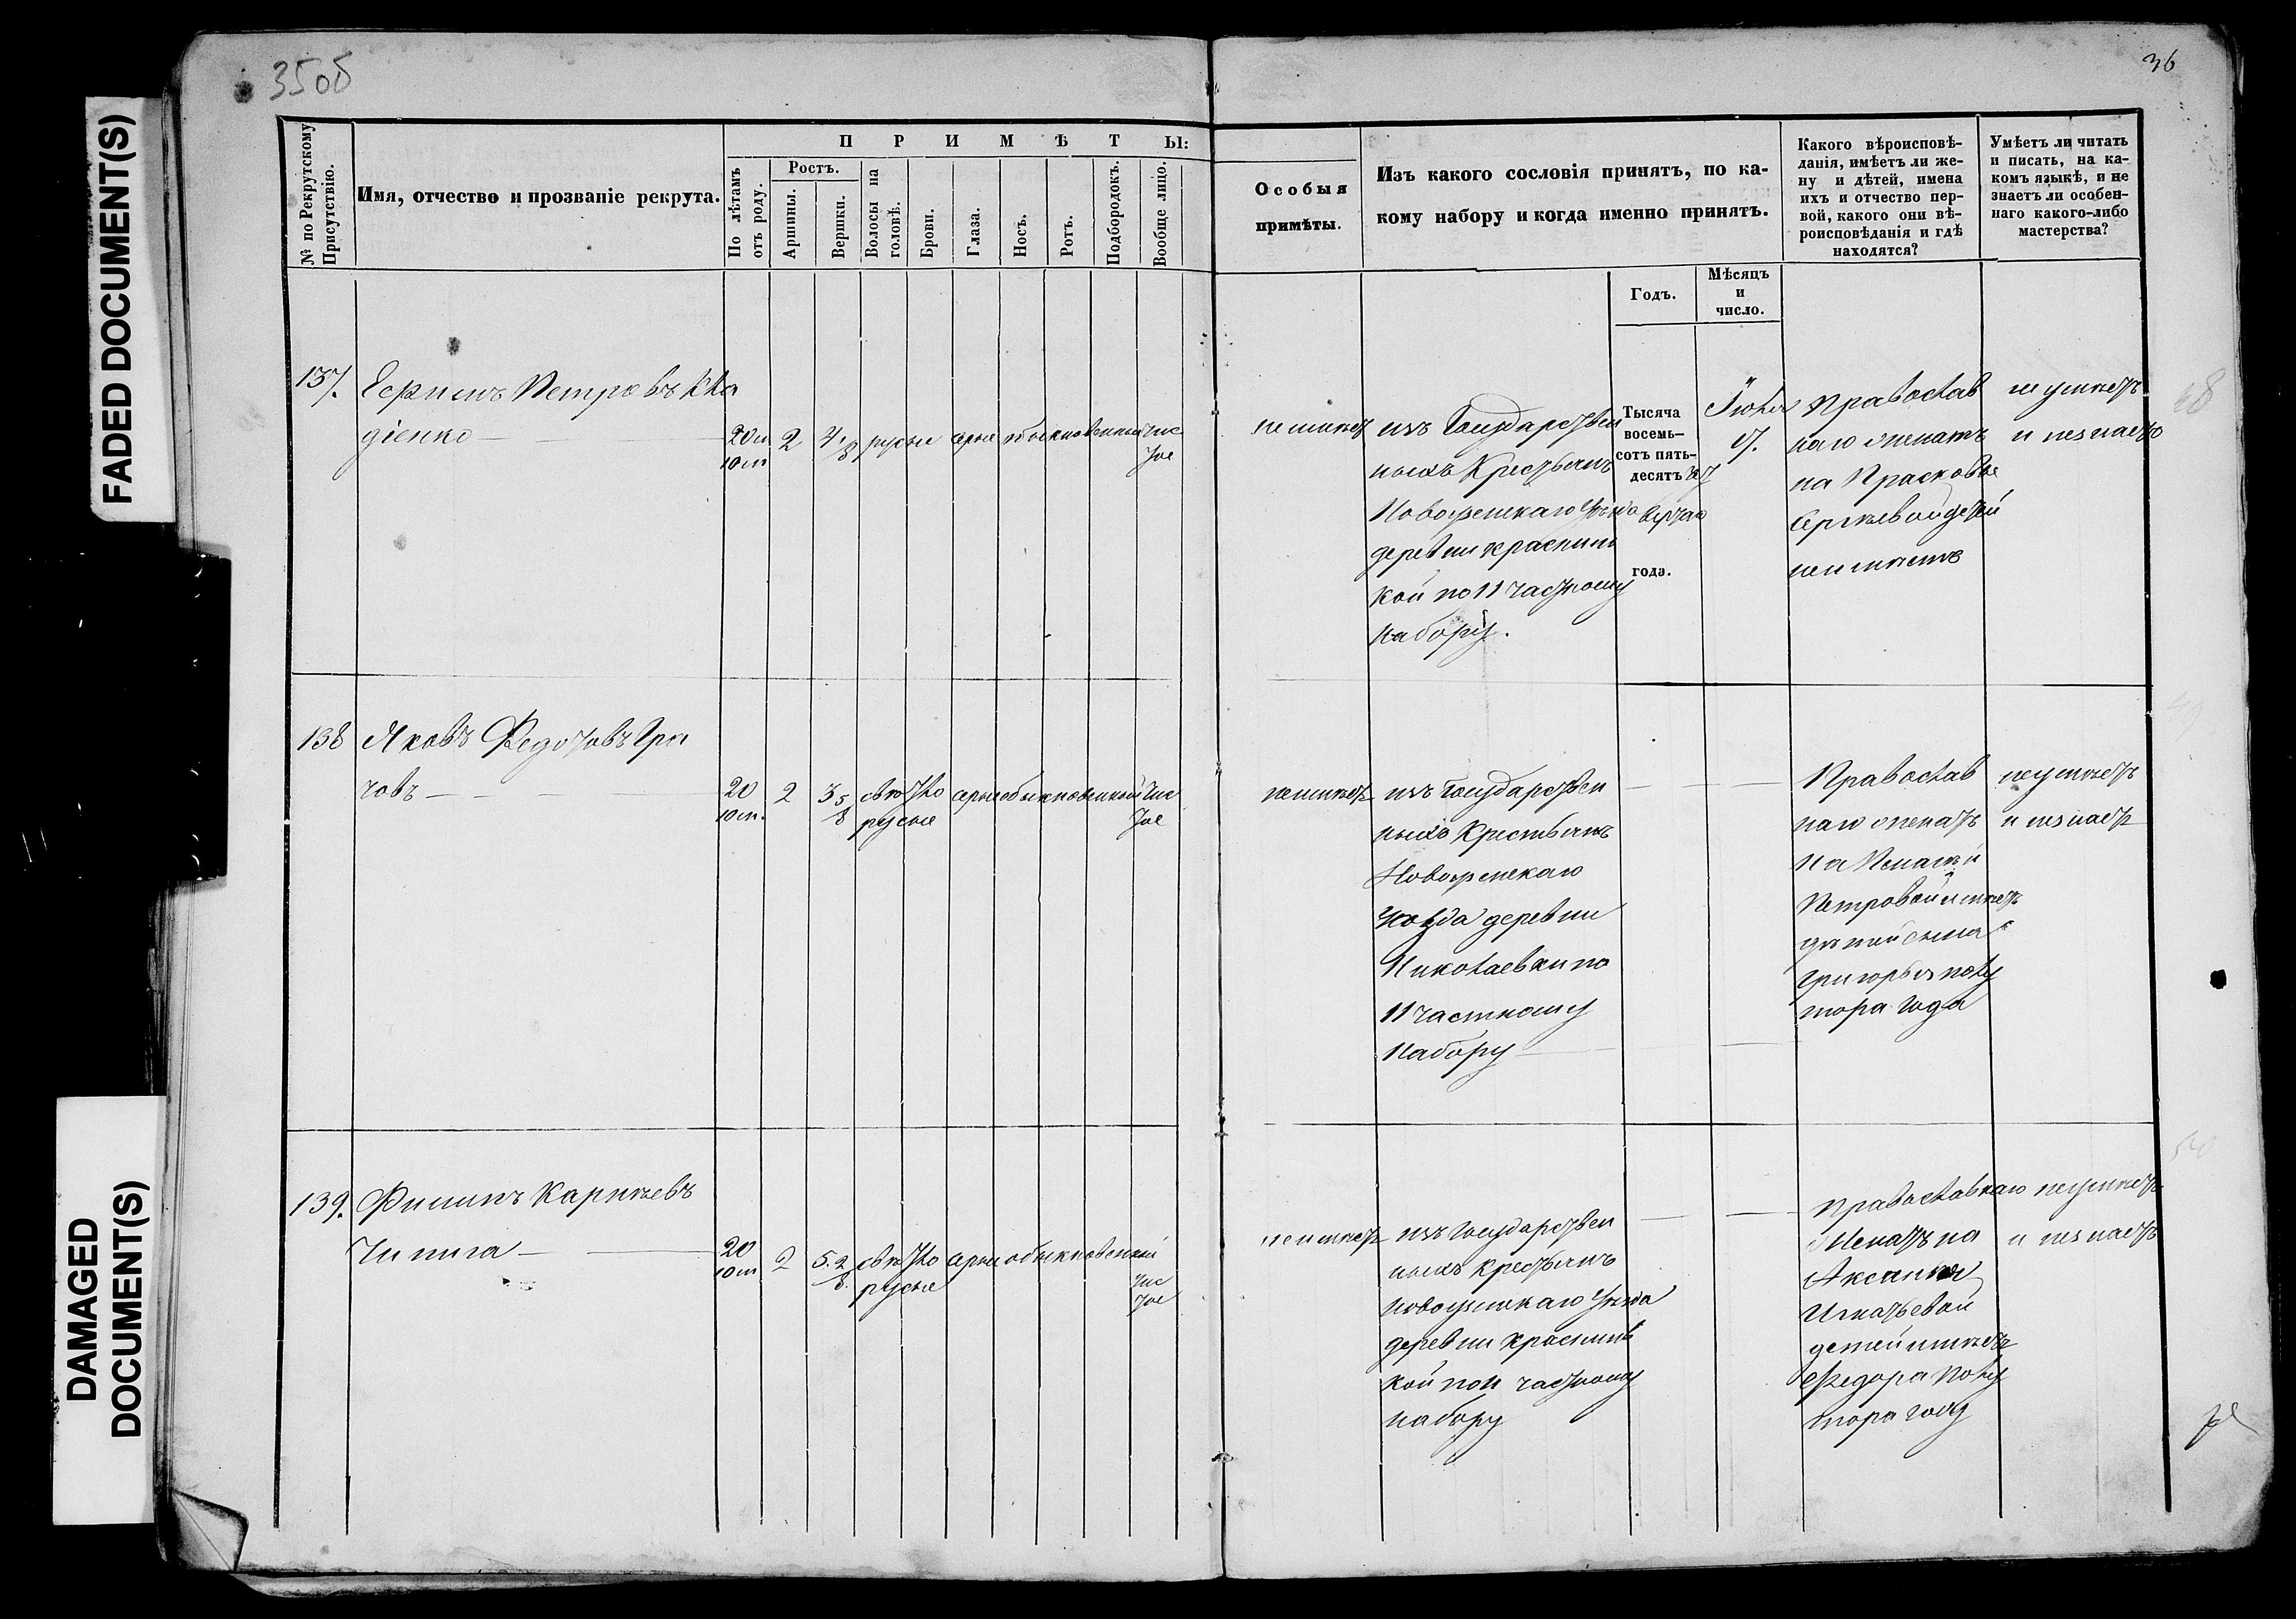 FADED DOCUMENT(S)
DAMAGED
DOCUMENT(S)
35об
36
№ по Рекрутскому
Присутствію.
Имя, отчество и прозваніе рекрута.
ПРИМѢТЫ:
По лѣтамъ
отъ роду.
Ростъ.
Аршины.
Вершки.
Волосы на
головѣ.
Брови.
Глаза.
Носъ.
Ротъ.
Подбородокъ.
Вообще лицо.
Особыя
примѣты.
Изъ какого сословія принятъ, по ка-
кому набору и когда именно принятъ.
Годъ.
Мѣсяцъ
и
число.
Какого вѣроисповѣ-
данія, имѣетъ ли же-
ну и дѣтей, имена
ихъ и отчество пер-
вой, какого они вѣ-
роисповѣданія и гдѣ
находятся?
Умѣетъ ли читать
и писать, на ка-
комъ языкѣ, и не
знаетъ ли особен-
наго какого-либо
мастерства?
137.
Ефимъ Петровъ Кла
діенко
20
10 м
2
4 1/8
русые
серые
обыкновенный
чис
тое
неимеет
изъ Государствен
ныхъ Крестьянъ
Новоузенскаго Уѣзда
деревни Краснян
кой по 11 частному
набору.
Тысяча
восемь-
сотъ пять-
десятъ
года.
Іюля
Православ
наго женатъ
на Прасковье
Сергѣевой детей
неимѣетъ
не умѣетъ
и не знаетъ
48
138
Яковъ Федотовъ Гра
човъ
20
10 м.
2
3 5/8
свѣтло
русые
серые
обыкновенной
чис
тое
неимѣетъ
изъ Государствен
ныхъ Крестьянъ
Новоузенскаго
Уѣзда деревни
Николаевки по
11 частному
Набору
Православ
наго женатъ
на
Петровой имѣетъ
сына
Григорья полу
тора года
неумѣетъ
и не знаетъ
49
139.
Филипъ Карпѣевъ
Чипига
20
10 м
2
5. 2/8.
свѣтло
русые
серые
обыкновенный
чис
тое
неимѣетъ
изъ Государствен
ныхъ крестьянъ
новоузенскаго Уѣзда
деревни Краснян
кой по 11 частному
набору
Православнаго
Женатъ на
Аксинье
Игнатьевой
детей имѣетъ
Федора полу
тора году
неумѣетъ
и не знаетъ
50